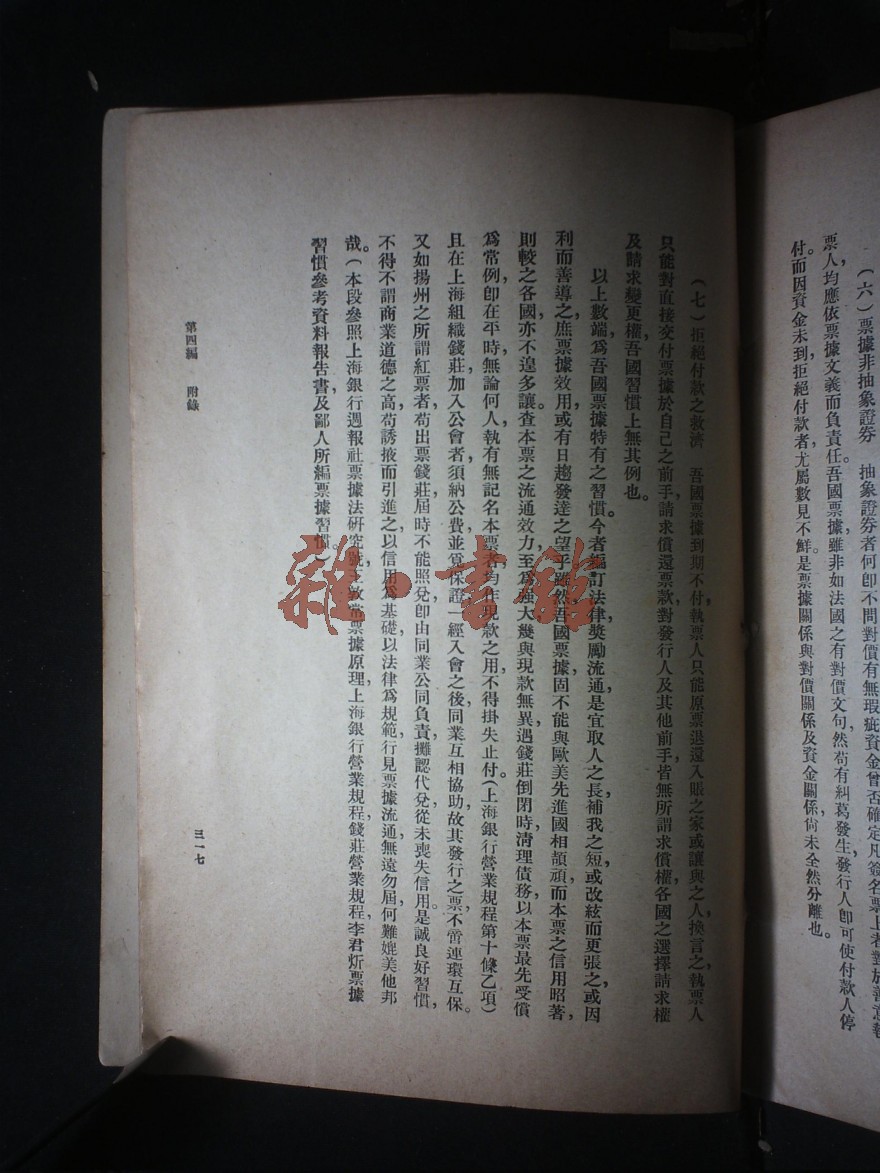 （六）票據非抽象證券　抽象證券者何卽不問對價有無瑕疵資金曾否確定凡簽名票上者對於善意執
票人，均應依票據文義而負責任吾國票據，雖非如法國之有對價文句，然苟有糾葛發生發行人卽可使付款人停
付。而因資金未到拒絕付款者，尤屬數見不鮮。是票據關係與對價關係及資金關係，尙未全然分離也。
（七）拒絕付款之救濟　吾國票據到期不付，執票人只能原票退還入賬之家或讓與之人，換言之，執票人
只能對直接交付票據於自己之前手，請求償還票款，對發行人及其他前手，皆無所謂求償權，各國之選擇請求權
及請求變更權，吾國習慣上無其例也。
以上數端，爲吾國票據特有之習慣。今者編訂法律，奬勵流通，是宜取人之長，補我之短，或改絃而更張之，或因
利而善導之，庶票據效用，或有日趨發達之望乎雖然吾國票據固不能與歐美先進國相頡頏，而本票之信用昭著，
則較之各國，亦不遑多讓。查本票之流通效力，至爲強大，幾與現款無異，遇錢莊倒閉時，淸理債務，以本票最先受償
爲常例，卽在平時，無論何人，執有無記名本票者，均作現款之用，不得掛失止付。（上海銀行營業規程第十條乙項）
且在上海組織錢莊，加入公會者，須納公費並覓保證，一經入會之後，同業互相協助，故其發行之票，不啻連環互保。
又如揚州之所謂紅票者，苟出票錢莊，屆時不能照兌，卽由同業公同負責，攤認代兌，從未喪失信用。是誠良好習慣，
不得不謂商業道德之高，苟誘掖而引進之，以信用爲基礎，以法律爲規範，行見票據流通，無遠勿屆，何難媲美他邦
哉。（本段參照上海銀行週報社票據法硏究號，王敦常票據原理，上海銀行營業規程，錢莊營業規程，李君炘票據
習慣參考資料報告書，及鄙人所編票據習慣。）
第四編　附錄
三一七
雜·書館